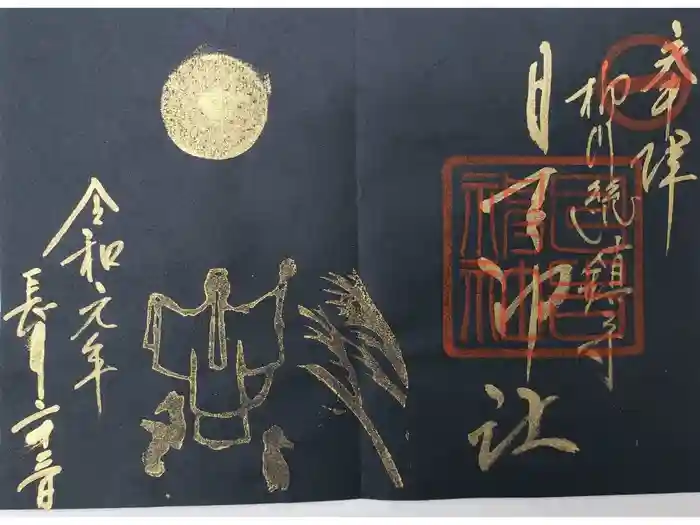 奉拝
柳川総鎮守
日吉神社
日吉
神社
令和元年
長月二十三日